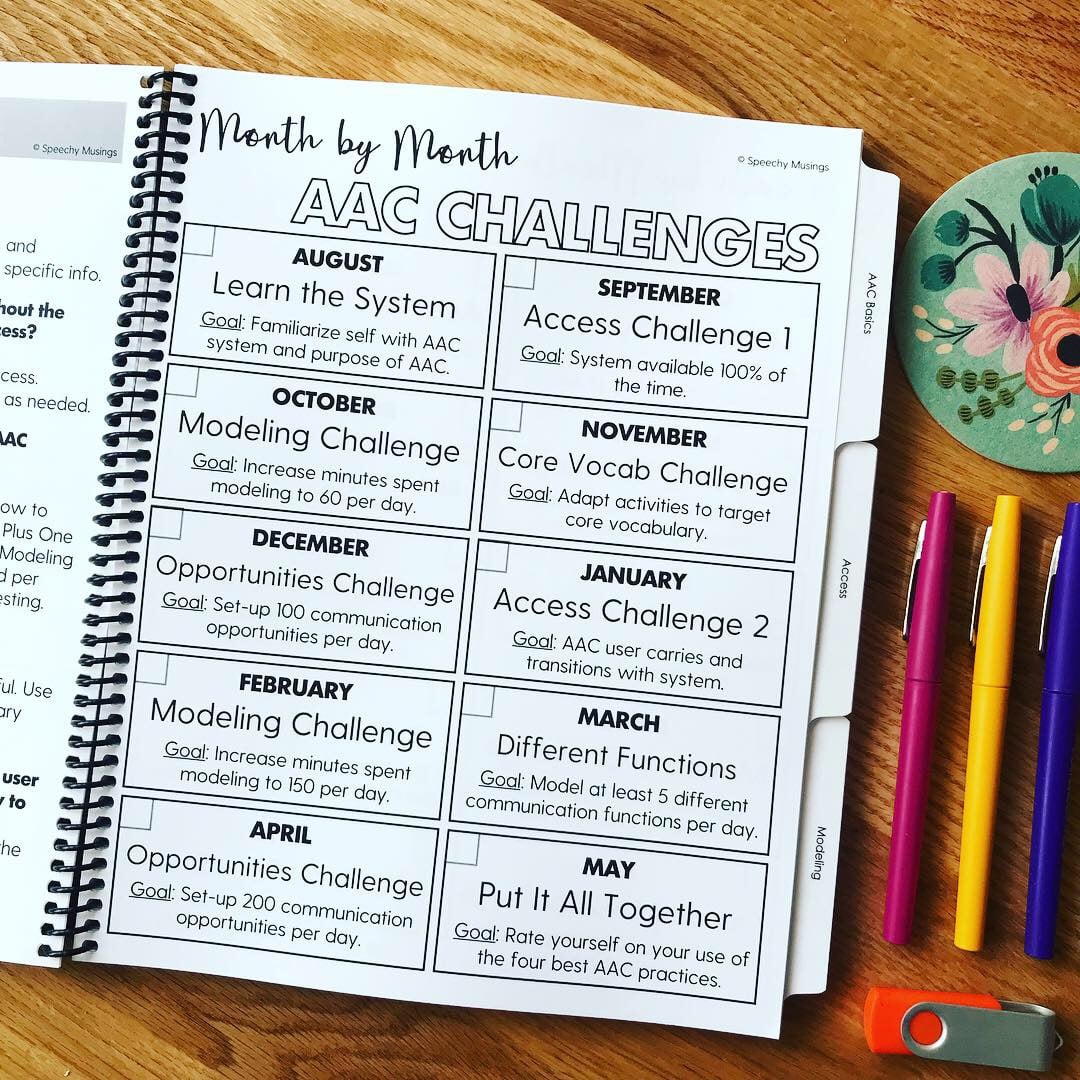 © Speechy Musings
and
specific info.
hout the
cess?
cess.
as needed.
AAC
ow to
Plus One
Modeling
d per
esting.
ful. Use
ary
user
y to
the
Month by Month
© Speechy Musings
AAC CHALLENGES
AUGUST
Learn the System
Goal: Familiarize self with AAC
system and purpose of AAC.
SEPTEMBER
Access Challenge 1
Goal: System available 100% of
the time.
OCTOBER
Modeling Challenge
Goal: Increase minutes spent
modeling to 60 per day.
NOVEMBER
Core Vocab Challenge
Goal: Adapt activities to target
core vocabulary.
DECEMBER
Opportunities Challenge
Goal: Set-up 100 communication
opportunities per day.
JANUARY
Access Challenge 2
Goal: AAC user carries and
transitions with system.
FEBRUARY
Modeling Challenge
Goal: Increase minutes spent
modeling to 150 per day.
MARCH
Different Functions
Goal: Model at least 5 different
communication functions per day.
APRIL
Opportunities Challenge
Goal: Set-up 200 communication
opportunities per day.
MAY
Put It All Together
Goal: Rate yourself on your use of
the four best AAC practices.
AAC Basics
Access
Modeling